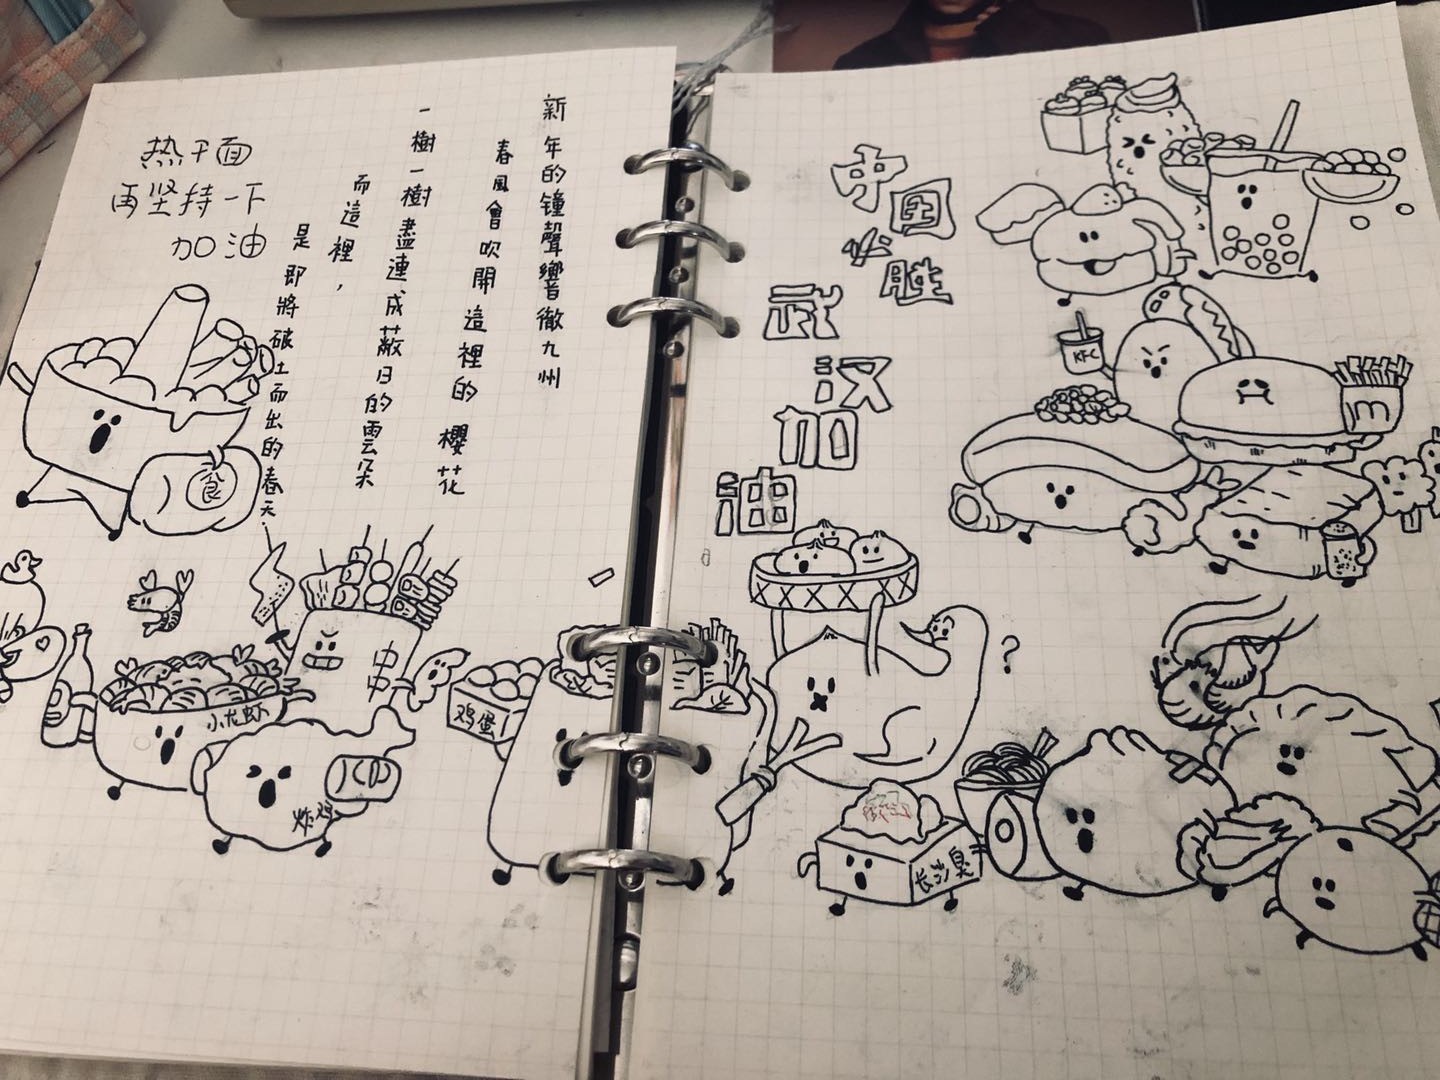 热干面
再坚持一下
加油
新年的鐘聲響徹九州
春風會吹開這裡的櫻花
一樹一樹盡連成蔽日的雲朵
而這裡，
是即將破土而出的春天.
食
串
小龙虾
炸鸡
鸡蛋
中国
必胜
武汉
加油
KFC
M
?
长沙臭